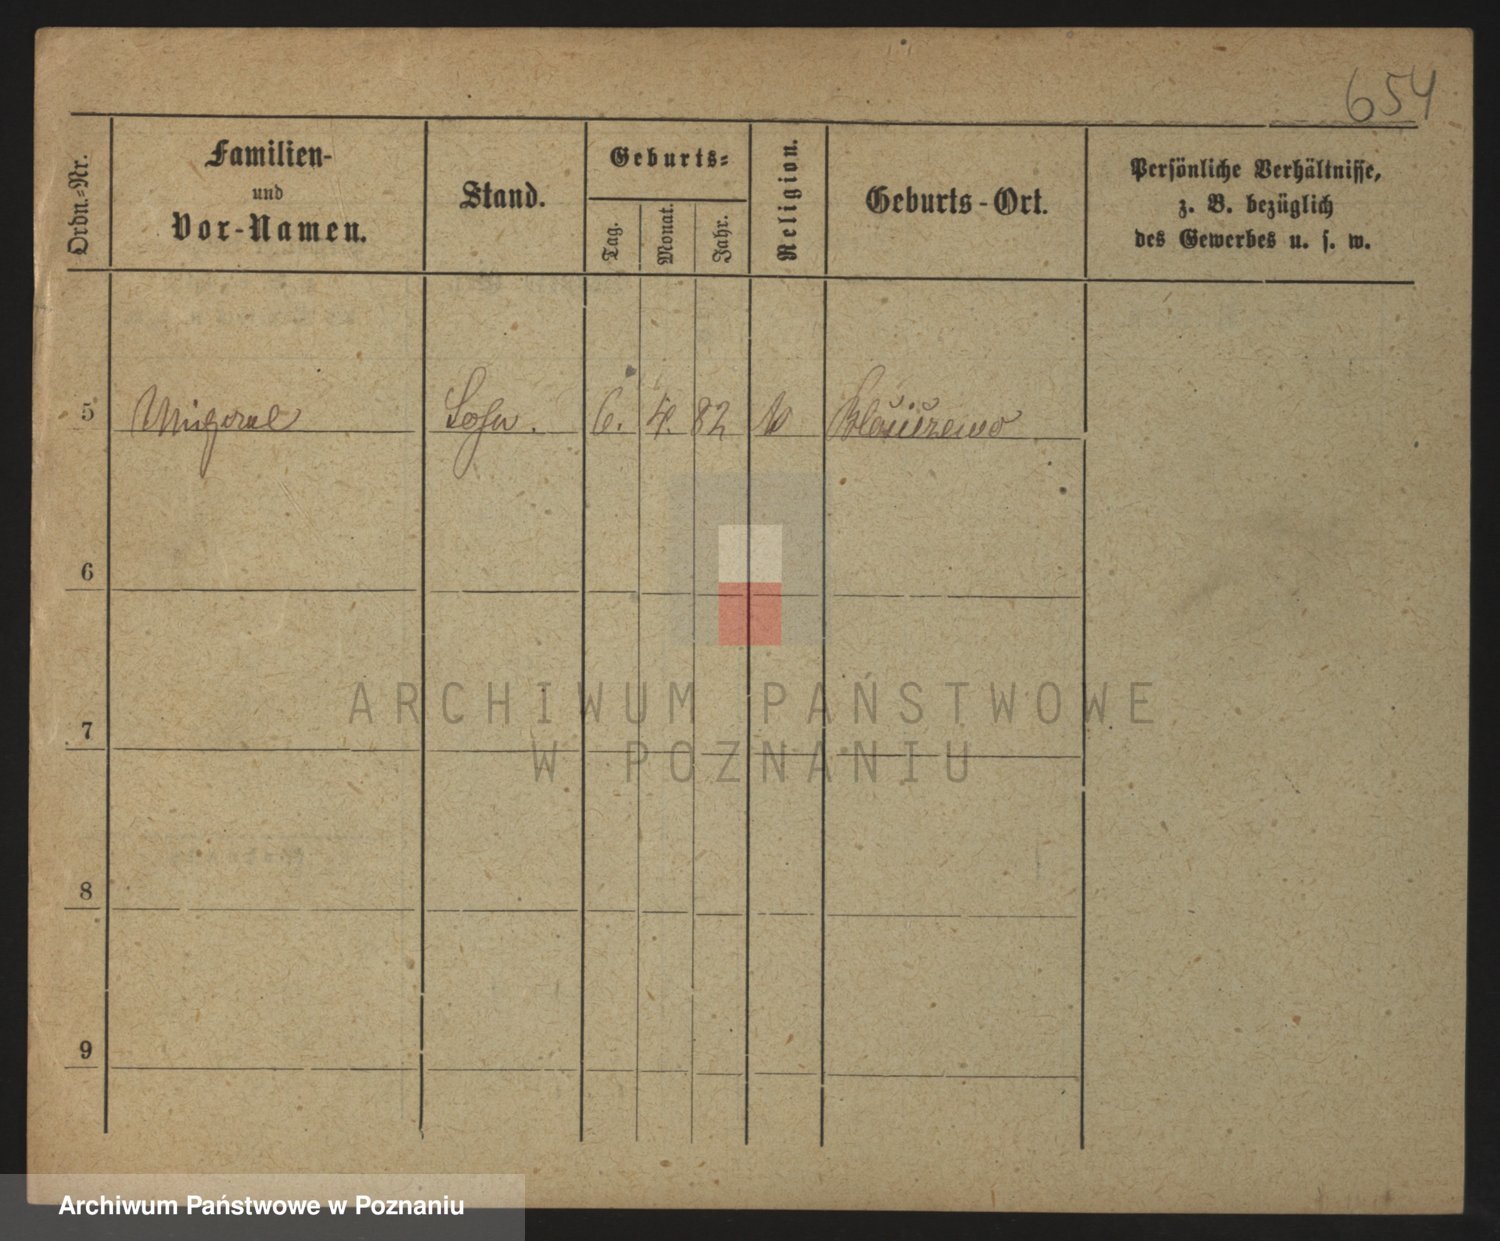 654
Ordn.-Nr.
Familien-
und
Vor-Namen.
Stand.
Geburts-
Tag.
Monat.
Jahr.
Religion.
Geburts-Ort.
Persönliche Verhältnisse,
z. B. bezüglich
des Gewerbes u. s. w.
5 Sohn. 6. 4. 82
6
7
8
9
ARCHIWUM PAŃSTWOWE
W POZNANIU
Archiwum Państwowe w Poznaniu